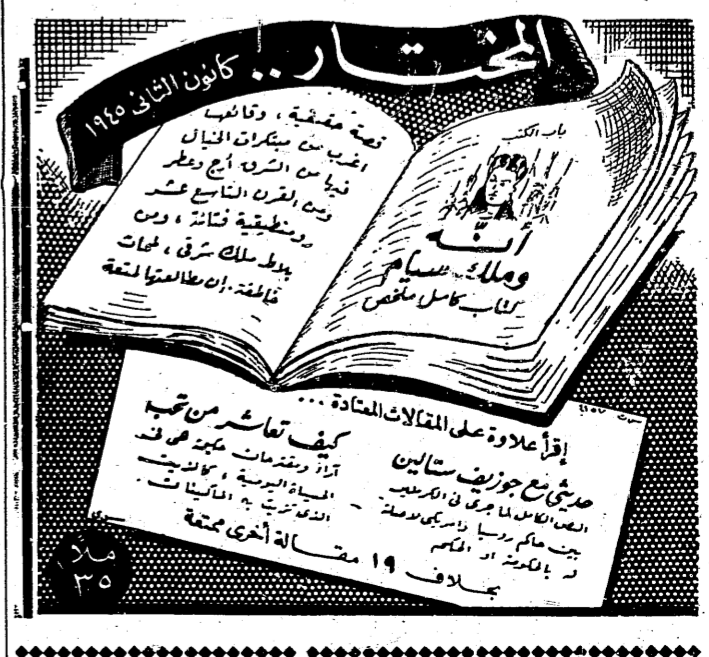 المختار .. كانون الثانى ١٩٤٥
قصة حقيقية ، وقائعها
اغرب من مبتكرات الخيال
فيها من الشرق أرج وعطر
ومن القرن التاسع عشر
رومنطيقية فتانة ، ومن
بلاط ملك شرقى ، لمحات
خاطفة . إن مطالعتها لمتعة
باب الكتب
أنّه
وملك سيام
كتاب كامل ملخص
إقرأ علاوة على المقالات المعتادة ...
حديثى مع جوزيف ستالين
النص الكامل لما جرى فى الكرملين
بين حاكم روسيا وأمريكى لا صلة
له بالحكومة او الحكم
كيف تعاشر من تحب
آراء ومقترحات حكيمة هى فى
الحياة اليومية ، كالزيت
الذى تزيت به الماكينات .
بخلاف ١٩ مقالة أخرى ممتعة
٣٥ ملا